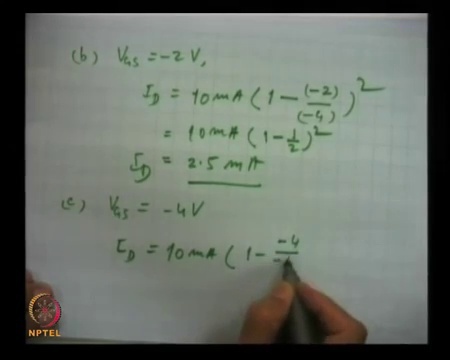 (b) VGS = -2 V,
ID = 10 mA (1 - (-2)/(-4))²
= 10 mA (1 - 1/2)²
ID = 2.5 mA
(c) VGS = -4V
ID = 10 mA (1 - -4/-
NPTEL